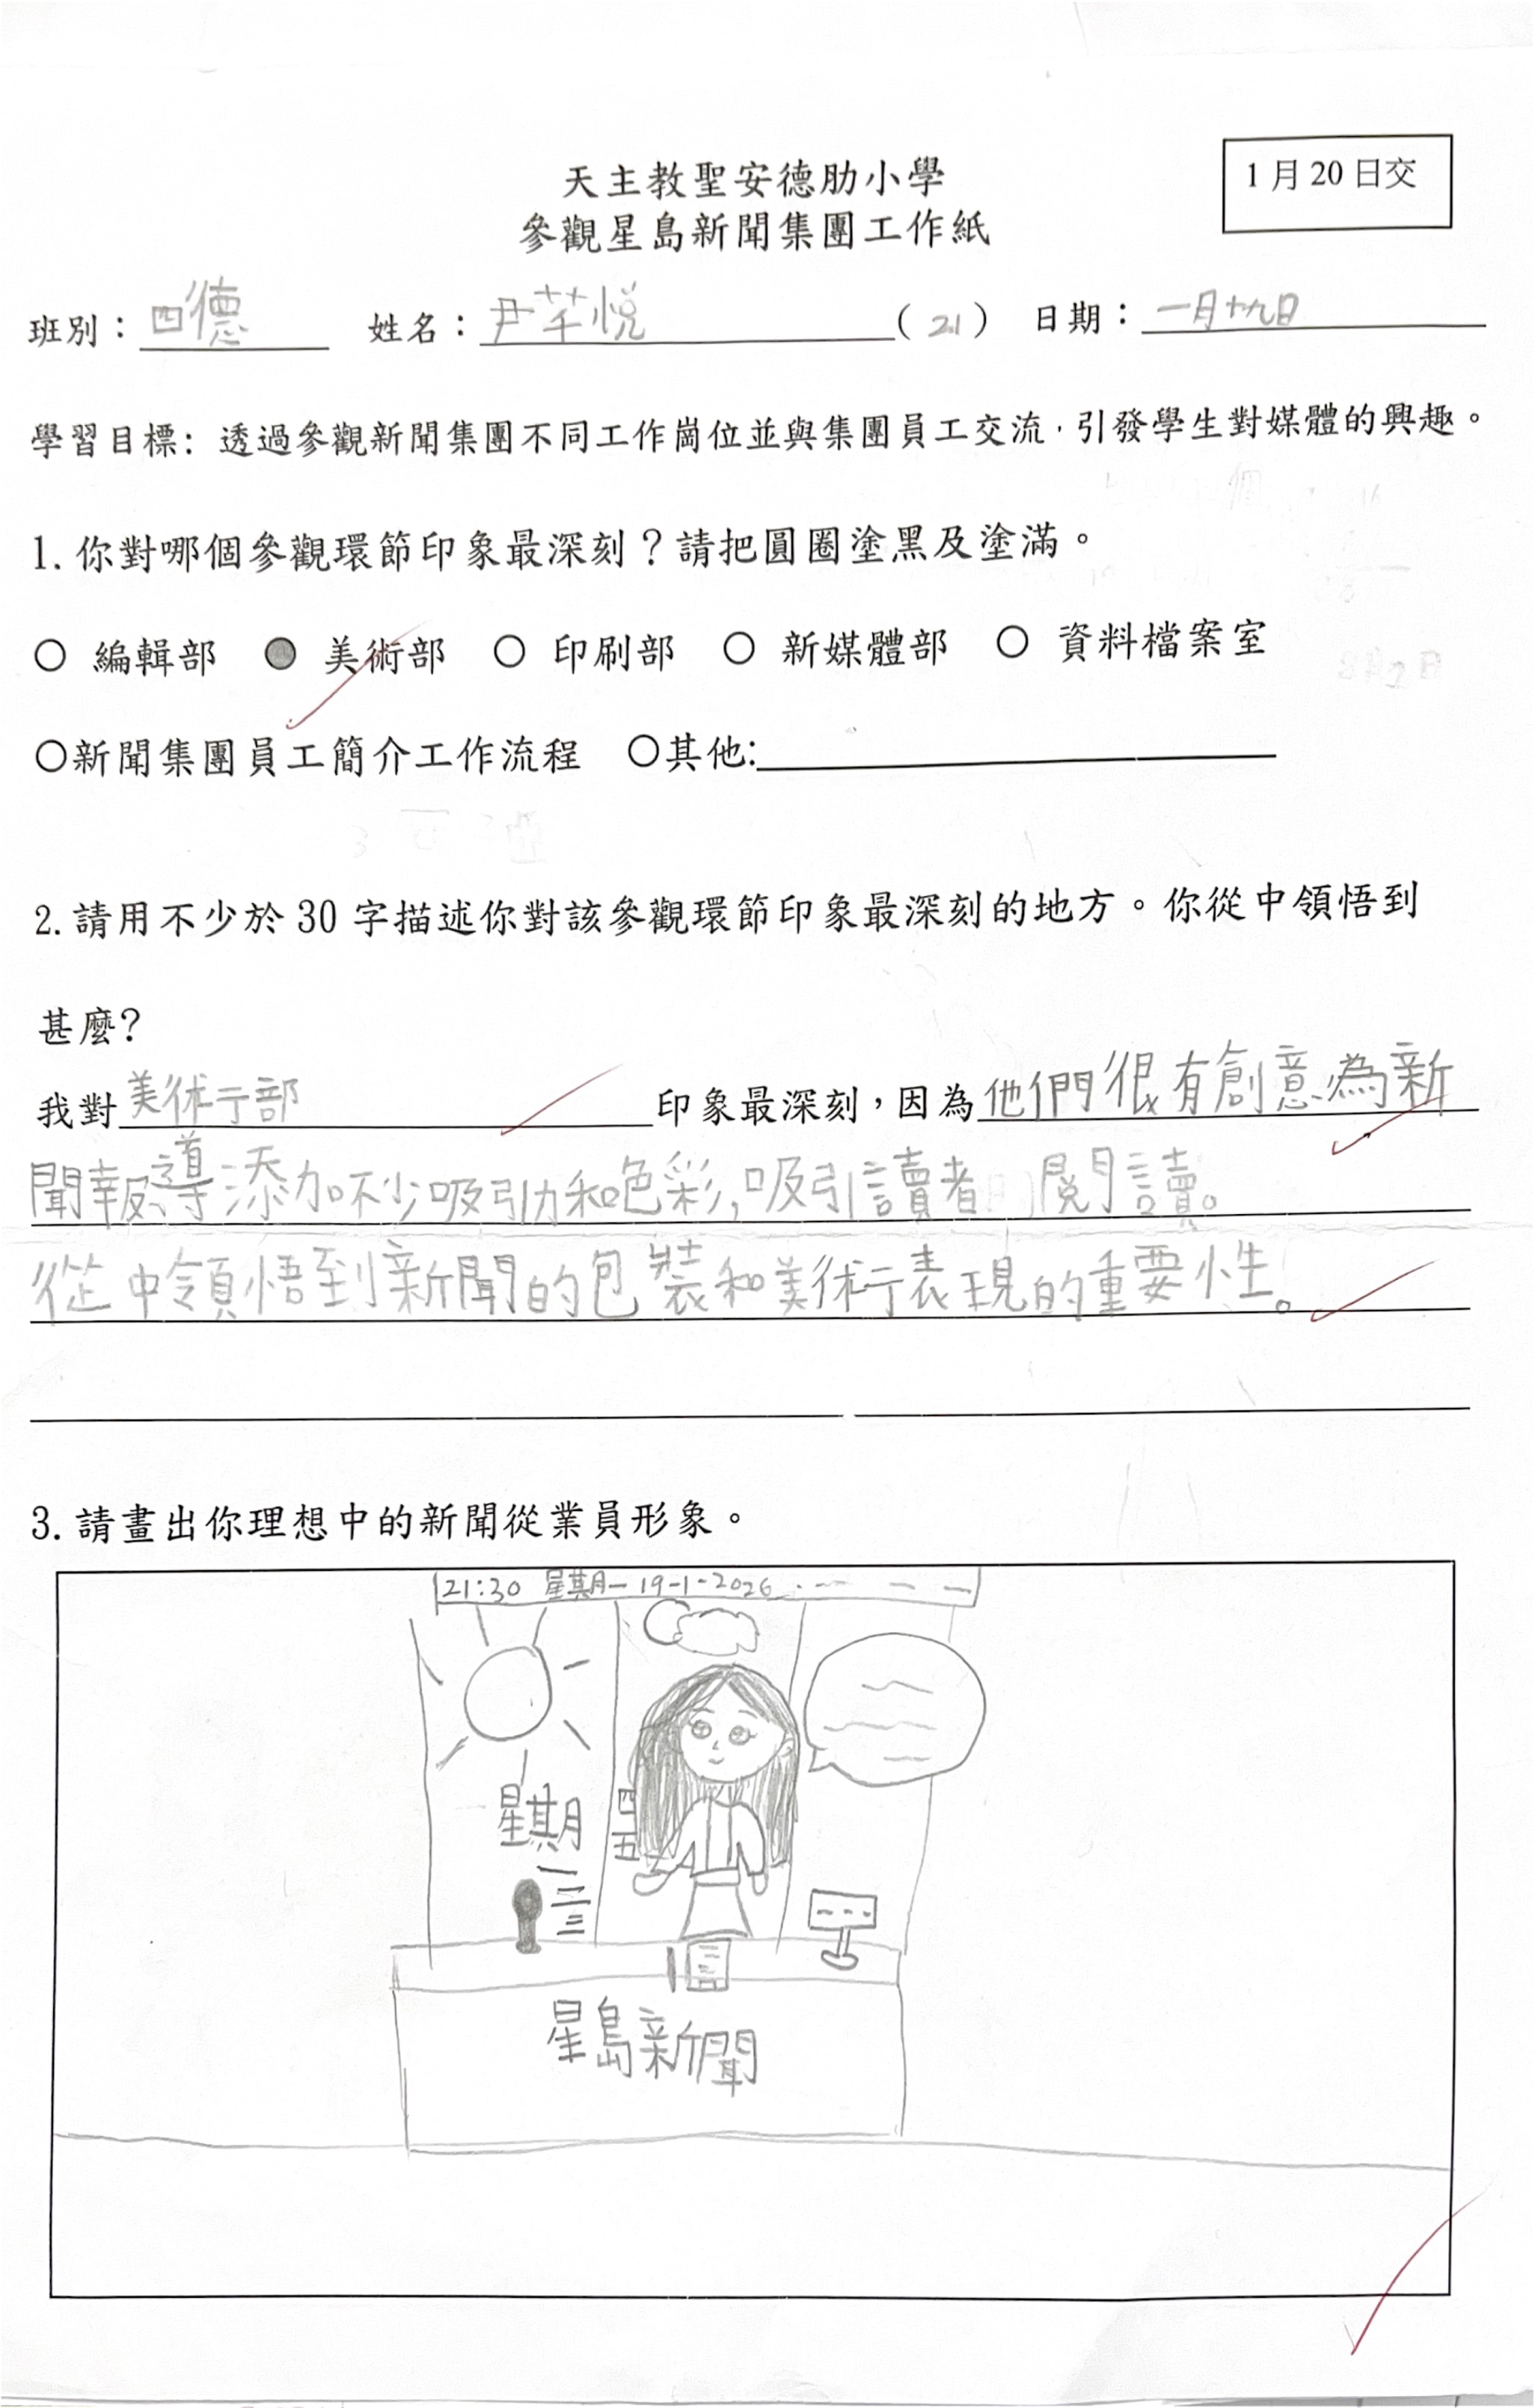 1月20日交
天主教聖安德肋小學
參觀星島新聞集團工作紙
班別：四德 姓名：尹芊悅（21） 日期：一月十九日
學習目標：透過參觀新聞集團不同工作崗位並與集團員工交流，引發學生對媒體的興趣。
1. 你對哪個參觀環節印象最深刻？請把圓圈塗黑及塗滿。
○ 編輯部 ● 美術部 ○ 印刷部 ○ 新媒體部 ○ 資料檔案室
○新聞集團員工簡介工作流程 ○其他:
2. 請用不少於30字描述你對該參觀環節印象最深刻的地方。你從中領悟到
甚麼?
我對美術部印象最深刻，因為他們很有創意,為新
聞報導添加不少吸引力和色彩,吸引讀者閱讀。
從中領悟到新聞的包裝和美術表現的重要性。
3. 請畫出你理想中的新聞從業員形象。
21:30 星期一 19-1-2026
星期
一
二
三
四
五
星島新聞